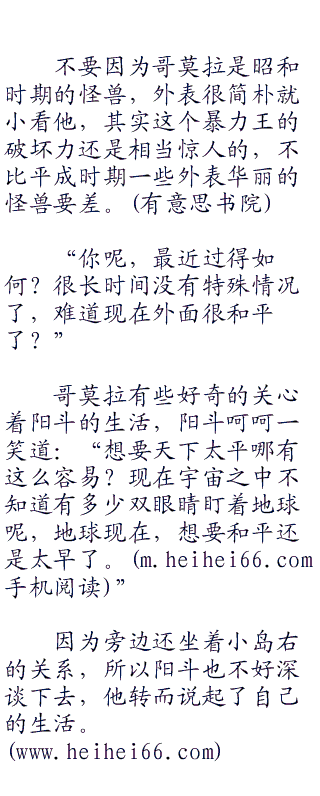 不要因为哥莫拉是昭和
时期的怪兽，外表很简朴就
小看他，其实这个暴力王的
破坏力还是相当惊人的，不
比平成时期一些外表华丽的
怪兽要差。(有意思书院)
“你呢，最近过得如
何？很长时间没有特殊情况
了，难道现在外面很和平
了？”
哥莫拉有些好奇的关心
着阳斗的生活，阳斗呵呵一
笑道：“想要天下太平哪有
这么容易？现在宇宙之中不
知道有多少双眼睛盯着地球
呢，地球现在，想要和平还
是太早了。(m.heihei66.com
手机阅读)”
因为旁边还坐着小岛右
的关系，所以阳斗也不好深
谈下去，他转而说起了自己
的生活。
(www.heihei66.com)